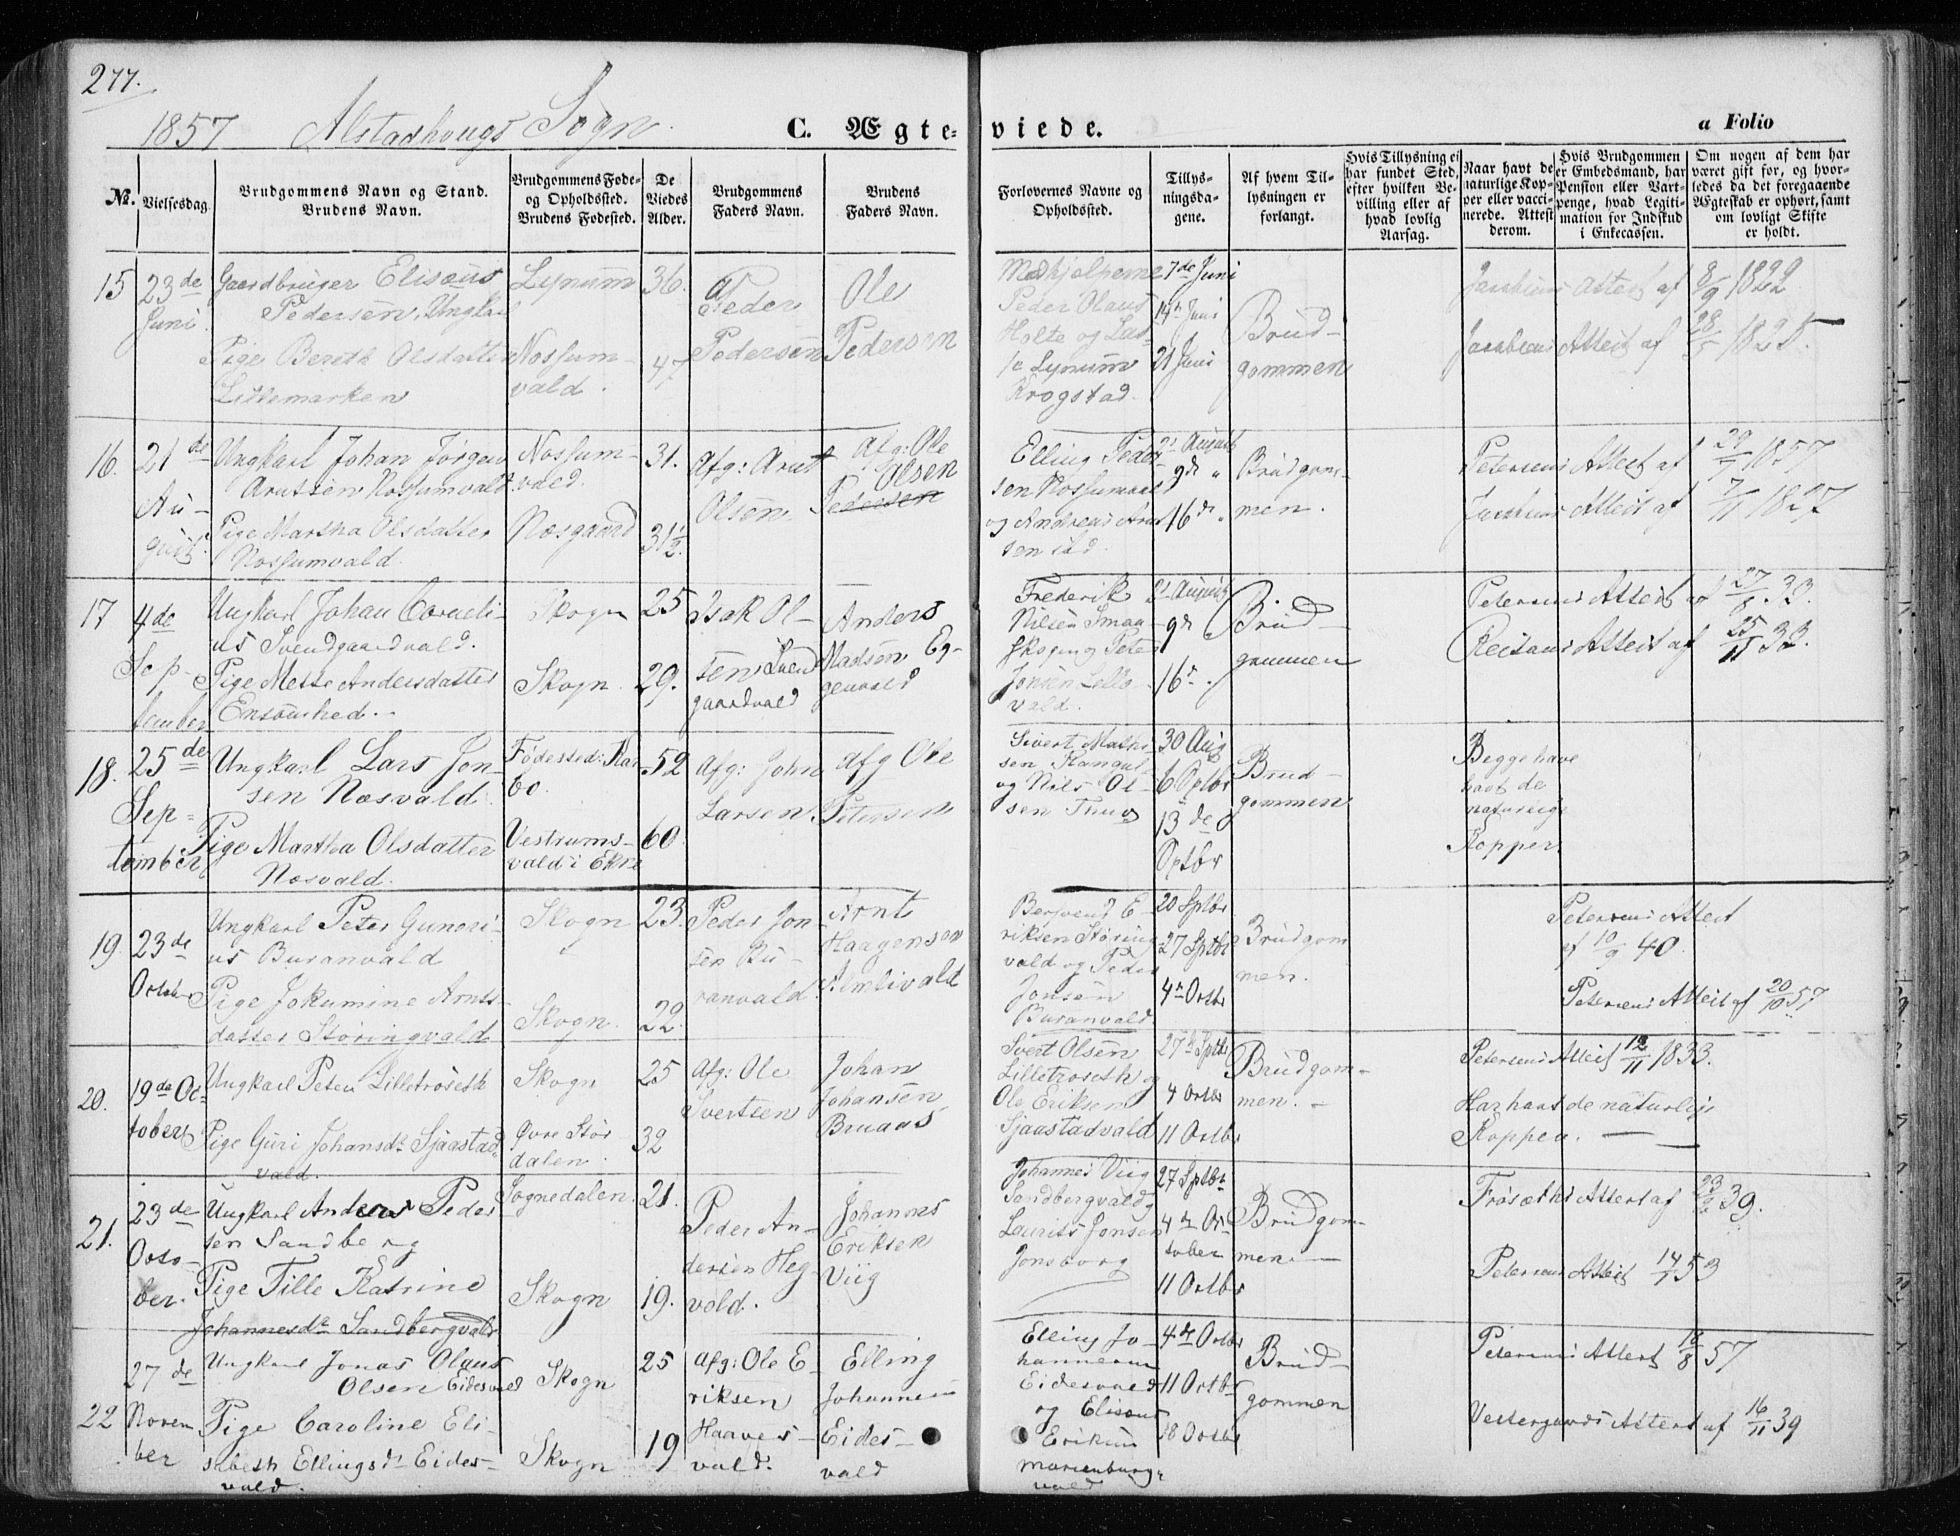 277.
1857 Alstadhougs Sogn.
C. Ægteviede.
a Folio
No.
Vielsesdag.
Brudgommens Navn og Stand.
Brudens Navn.
Brudgommens Føde-
og Opholdssted.
Brudens Fødested.
De
Viedes
Alder.
Brudgommens
Faders Navn.
Brudens
Faders Navn.
Forlovernes Navne og
Opholdssted.
Tillys-
ningsda-
gene.
Af hvem Til-
lysningen er
forlangt.
Hvis Tillysning ei
har fundet Sted,
efter hvilken Be-
villing eller af
hvad lovlig
Aarsag.
Naar havt de
naturlige Kop-
per eller vacci-
nerede. Attest
derom.
Hvis Brudgommen
er Embedsmand, har
Pension eller Vart-
penge, hvad Legiti-
mation for Indskud
i Enkecassen.
Om nogen af dem har
været gift før, og hvor-
ledes da det foregaaende
Ægteskab er ophørt, samt
om lovligt Skifte
er holdt.
15
23de
Juni
Gaardbruger Elisæus
Pedersen, Ungkarl
Pige Bereth Olsdatter
Lillemarken
Lynum
Nossum-
vald.
36.
47
Peder
Pedersen
Ole
Pedersen
Medhjelperne
Peder Olaus
Holte og Las-
se Lynum
Krogstad.
7de Juni
14de Juni
21 Juni
Brud-
gommen
Jacobsens Attest af 8/9 1822
Jacobsens Attest af 28/5 1825.
16.
21de
Au-
gust.
Ungkarl Johan Jørgen
Arntsen Nossumvald
Pige Martha Olsdatter
Nossumvald.
Nossum-
vald.
Næsgaard
31.
31½
Afg: Arnt
Olsen
Afg: Ole
Olsen
Pedersen
Elling Peder-
sen Nossumvald
og Andreas Arn
sen ibd.
2de August
9de "
16de "
Brudgom-
men.
Petersens Attest af 29/7 1857
Jacobsens Attest af 7/11 1827
17
4de
Sep-
tember
Ungkarl Johan Corneli-
us Svendgaardvald.
Pige Mette Andersdatter
Ensomhed.
Skogn
Skogn.
25
29.
Isak Ol-
sen Svend
gaardvald
Anders
Madsen Eg-
genvald
Frederik
Nilsen Smaa-
skog og Peter
Jonsen Lello
vald.
2de August
9de
16de
Brud-
gommen
Petersens Attest af 27/8 33.
Reitans Attest af 25/11 33.
18.
25de
Sep-
tember
Ungkarl Lars Jon-
sen Næsvald.
Pige Martha Olsdatter
Næsvald.
Fødested: Kar-
bo.
Vestrums-
vald i Ekne
52
60
Afg: John
Larsen.
Afg Ole
Petersen
Sivert Mathi-
sen
og Nils Ol-
sen
30 Aug
6 Sptbr
13 de
Sptbr
Brud-
gommen
Begge have
havt de
naturlige
Kopper.
19.
23de
October
Ungkarl Peter Guneri-
us Buranvald
Pige Jokumine Arnts-
datter Støringvald
Skogn
Skogn.
23.
22.
Peder Jon
sen Bu-
ranvald.
Arnt
Haagensen
Almlivald
Bersvend E-
riksen Støring
vald og Peder
Jonsen
Buranvald.
20 Sptbr
27 Sptbr
4de Octbr
Brudgom
men.
Petersens Attest
af 10/9 40.
Petersens Attest af 20/10 57
20.
19de Oc-
tober
Ungkarl Peter Lilletroseth
Pige Guri Johansdr Sjaastad
vald.
Skogn
Øvre Stør
dalen.
25
32
Afg: Ole
Svertsen
Johan
Johansen
Bruaas
Svert Olsen
Lilletroseth og
Ole Eriksen
Sjaastadvald
27de Sptbr
4 Octbr
11 Octbr
Brudgom-
men.
Petersens Attest 12/11 1833.
Har havt de naturlige
Kopper.
21.
23de
Octo-
ber.
Ungkarl Anders Peder
sen Sandberg
Pige Tille Katrine
Johannesdr Sandbergvald
Sognedalen.
Skogn
21.
19.
Peder An-
dersen Heg
vold.
Johannes
Eriksen
Viig
Johannes Viig
Sandbergvald og
Laurits Jonsen
Jonsborg
27 Sptbr
4de Oc
tober
11 Octbr
Brudgom-
men
Frøseths Attest af 23/6 39.
Petersens Attest 14/7 53
22
27de
Novem
ber
Ungkarl Jonas Olaus
Olsen Eidesvald
Pige Caroline Eli-
sabeth Ellingsdr Eides-
vald.
Skogn
Skogn
25
19
Afg: Ole E-
riksen
Haaves-
vald.
Elling
Johannesen
Eides-
vald
Elling Jo-
hannesen
Eidesvald
og Elisæus
Eriksen
Marienborg-
vald
4de Octbr
11 Octbr
18 Octbr
Brud-
gommen
Petersens Attest 18/8 57
Vestergaards Attest af 16/11 39